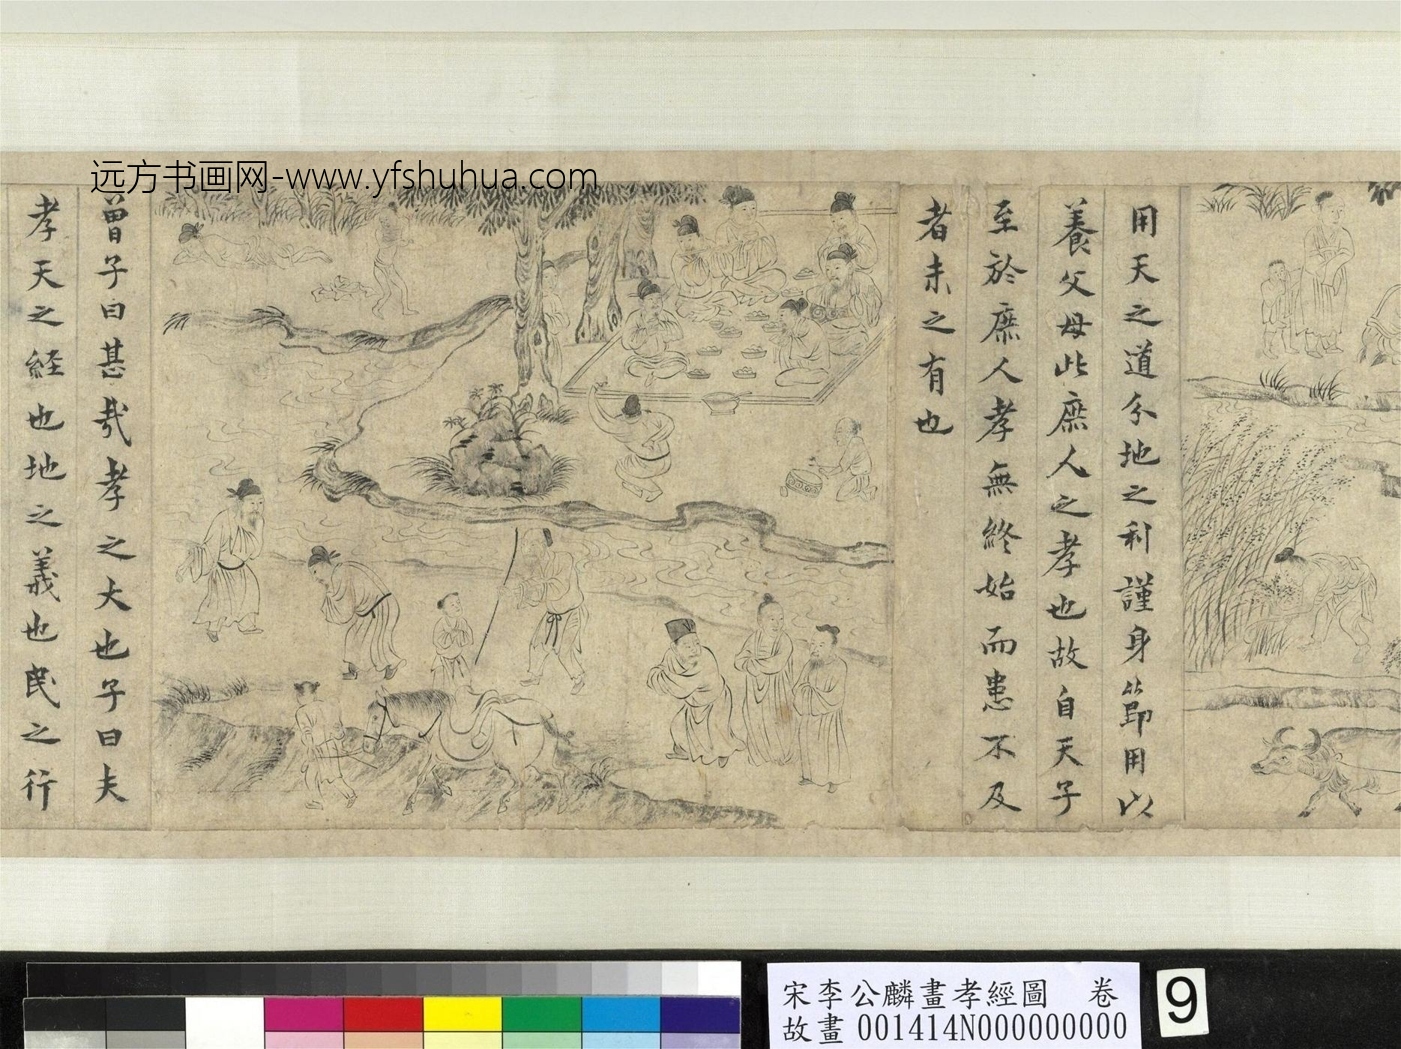 远方书画网-www.yfshuhua.com
用天之道分地之利謹身節用以
養父母此庶人之孝也故自天子
至於庶人孝無終始而患不及
者未之有也
曾子曰甚哉孝之大也子曰夫
孝天之経也地之義也民之行
宋李公麟畫孝經圖 卷
故畫 001414N000000000
9